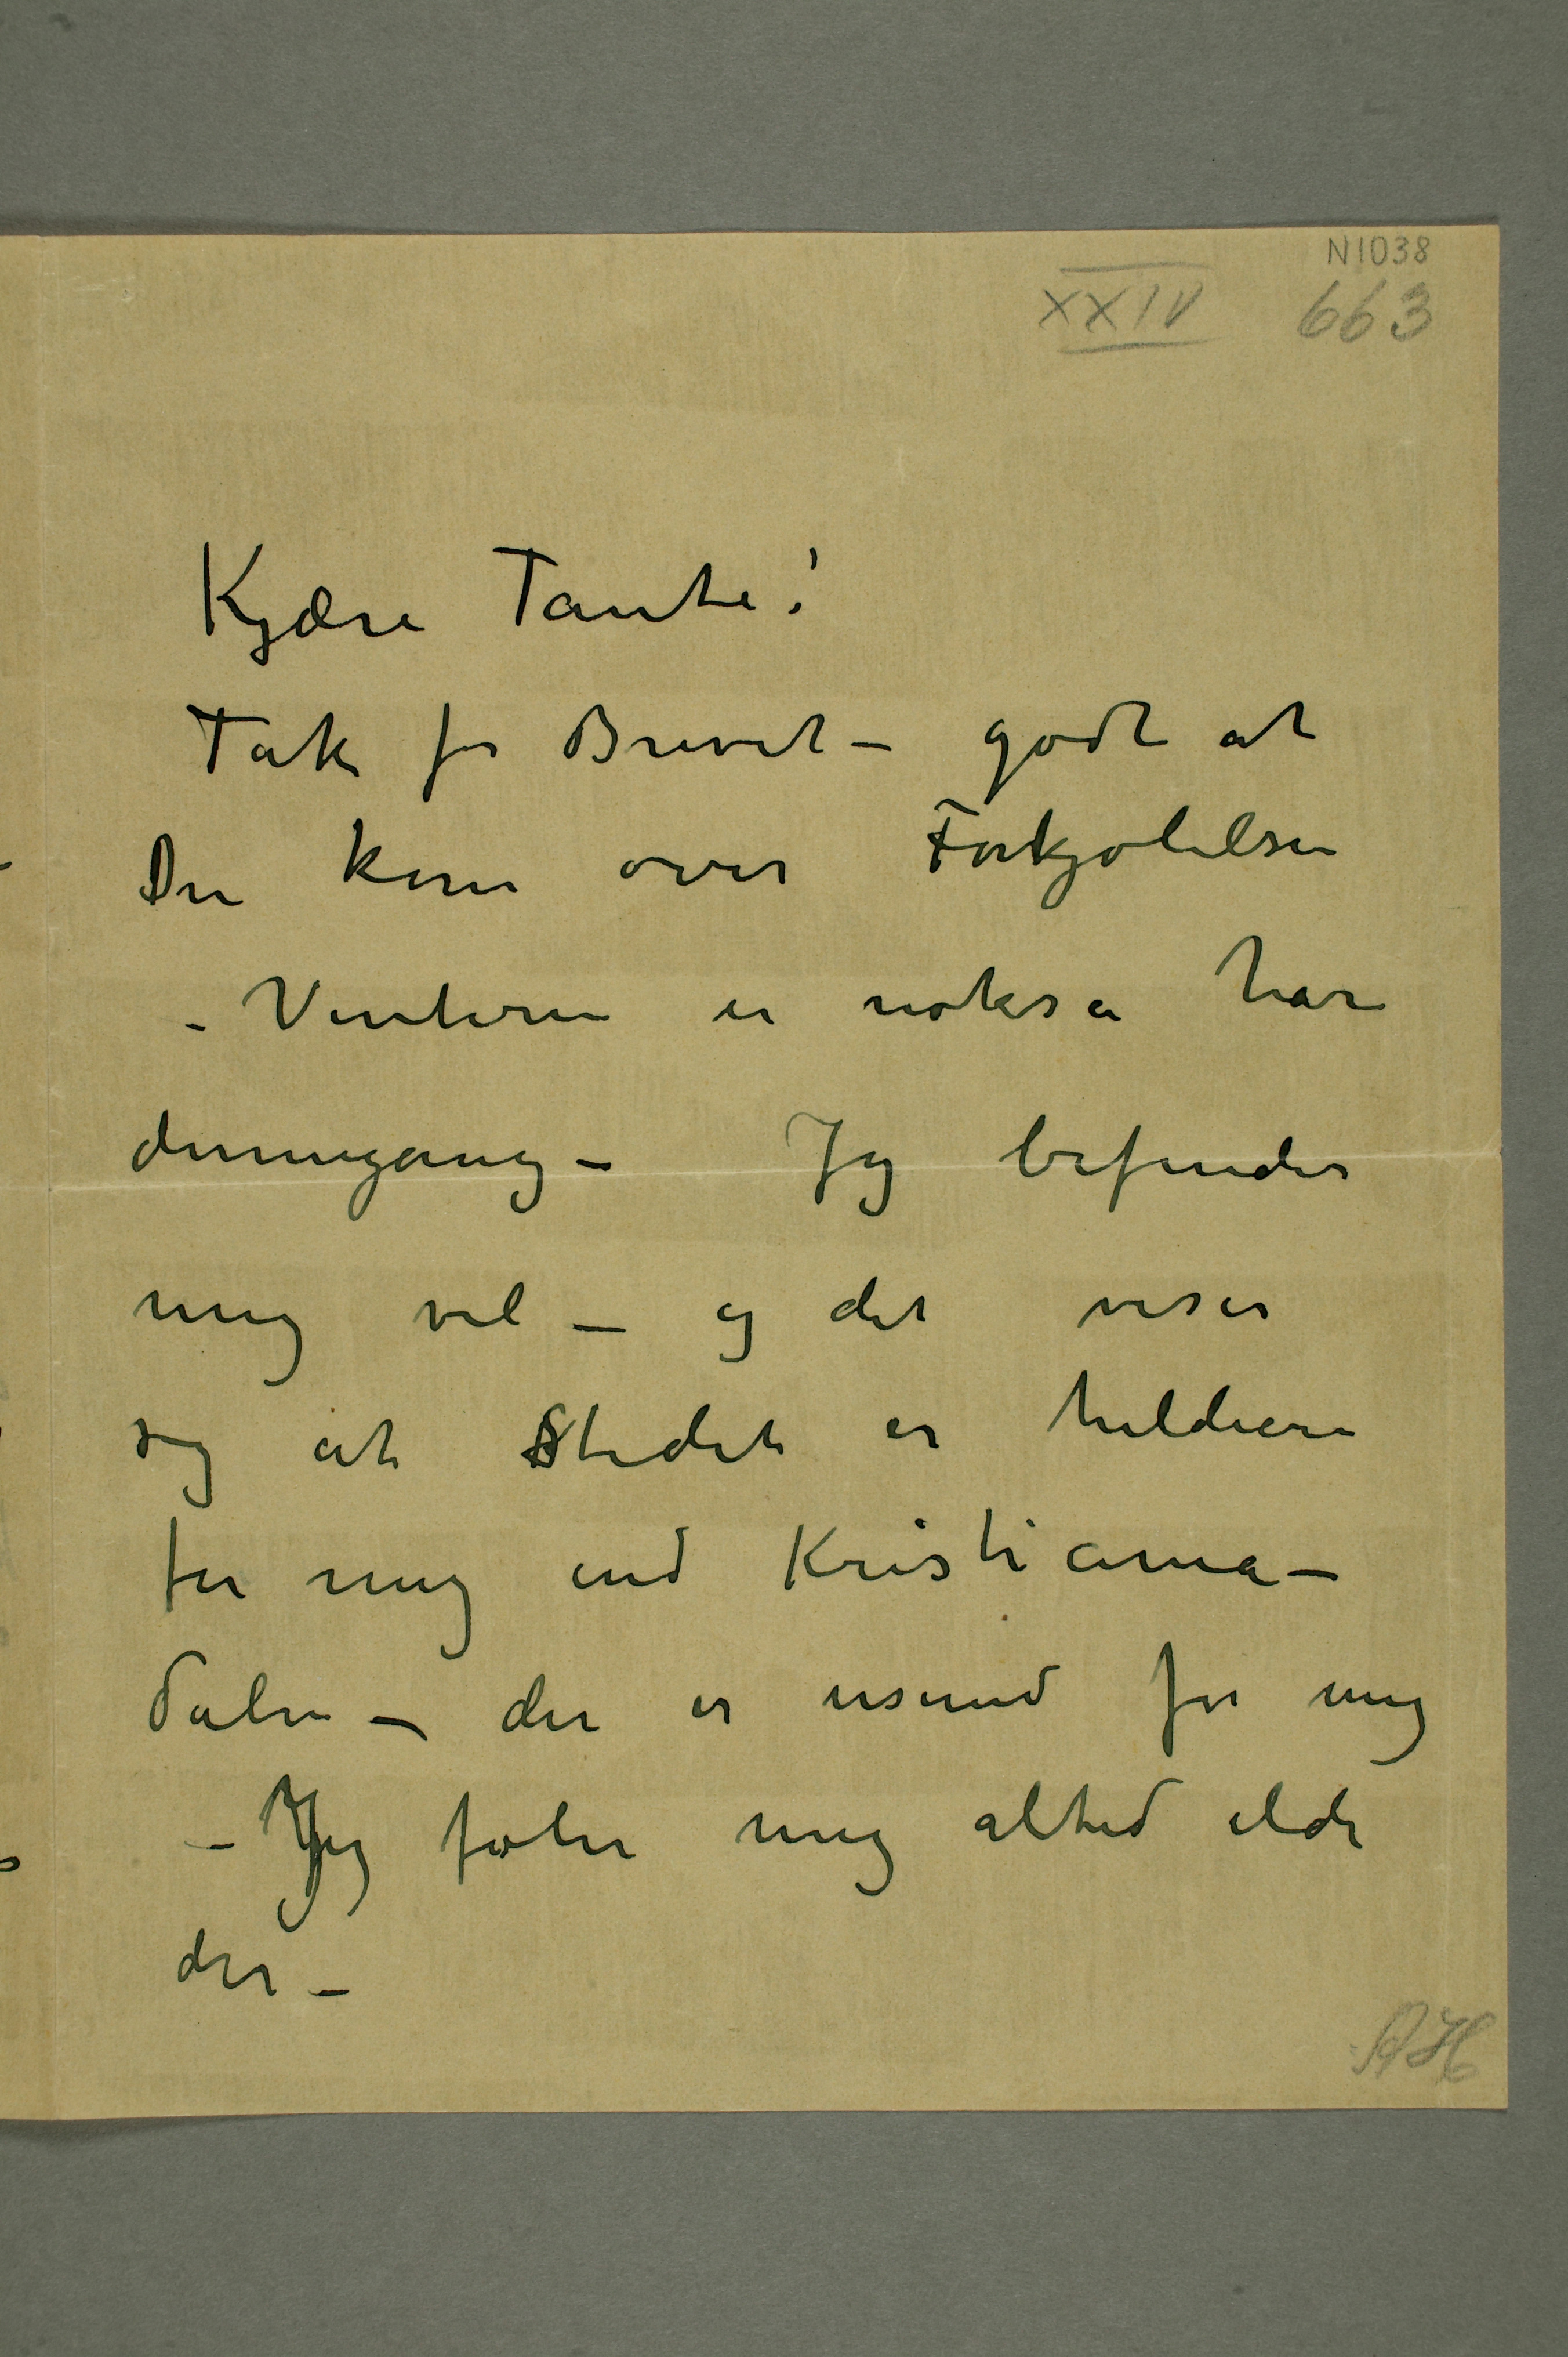 N1038
XXIV 663
Kjære Tante!
Tak for Brevet – godt at
Du kom over Forkjølelsen
– Vinteren er noksa har
dennegang – Jeg befinder
mig vel – og det viser
sig at Stedet er heldiere
for mig end Kristiania –
dalen – der er usund for mig
– Jeg føler mig altid ilde
der –
AH